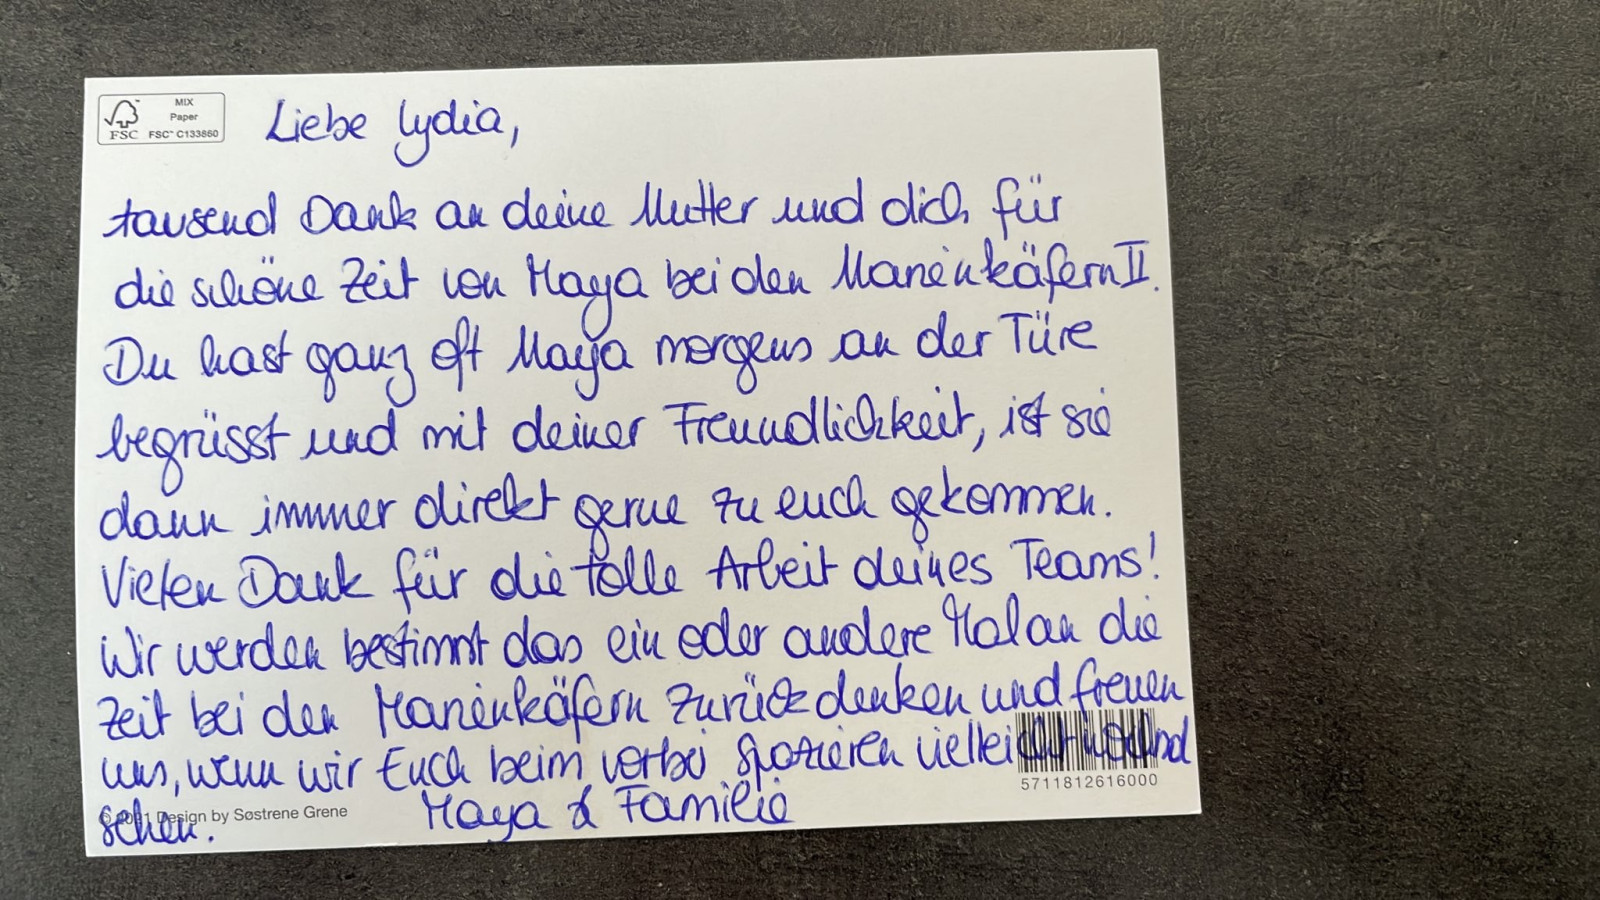 MIX
Paper
FSC™ C133860
FSC
Liebe Lydia,
tausend Dank an deine Mutter und dich für
die schöne Zeit von Maya bei den Marienkäfern II.
Du hast ganz oft Maya morgens an der Türe
begrüsst und mit deiner Freundlichkeit, ist sie
dann immer direkt gerne zu euch gekommen.
Vielen Dank für die tolle Arbeit deines Teams!
Wir werden bestimmt das ein oder andere Mal an die
Zeit bei den Marienkäfern zurückdenken und freuen
uns, wenn wir Euch beim vorbei spazieren vielleicht
5711812616000
sehen.
Design by Søstrene Grene
Maya & Familie